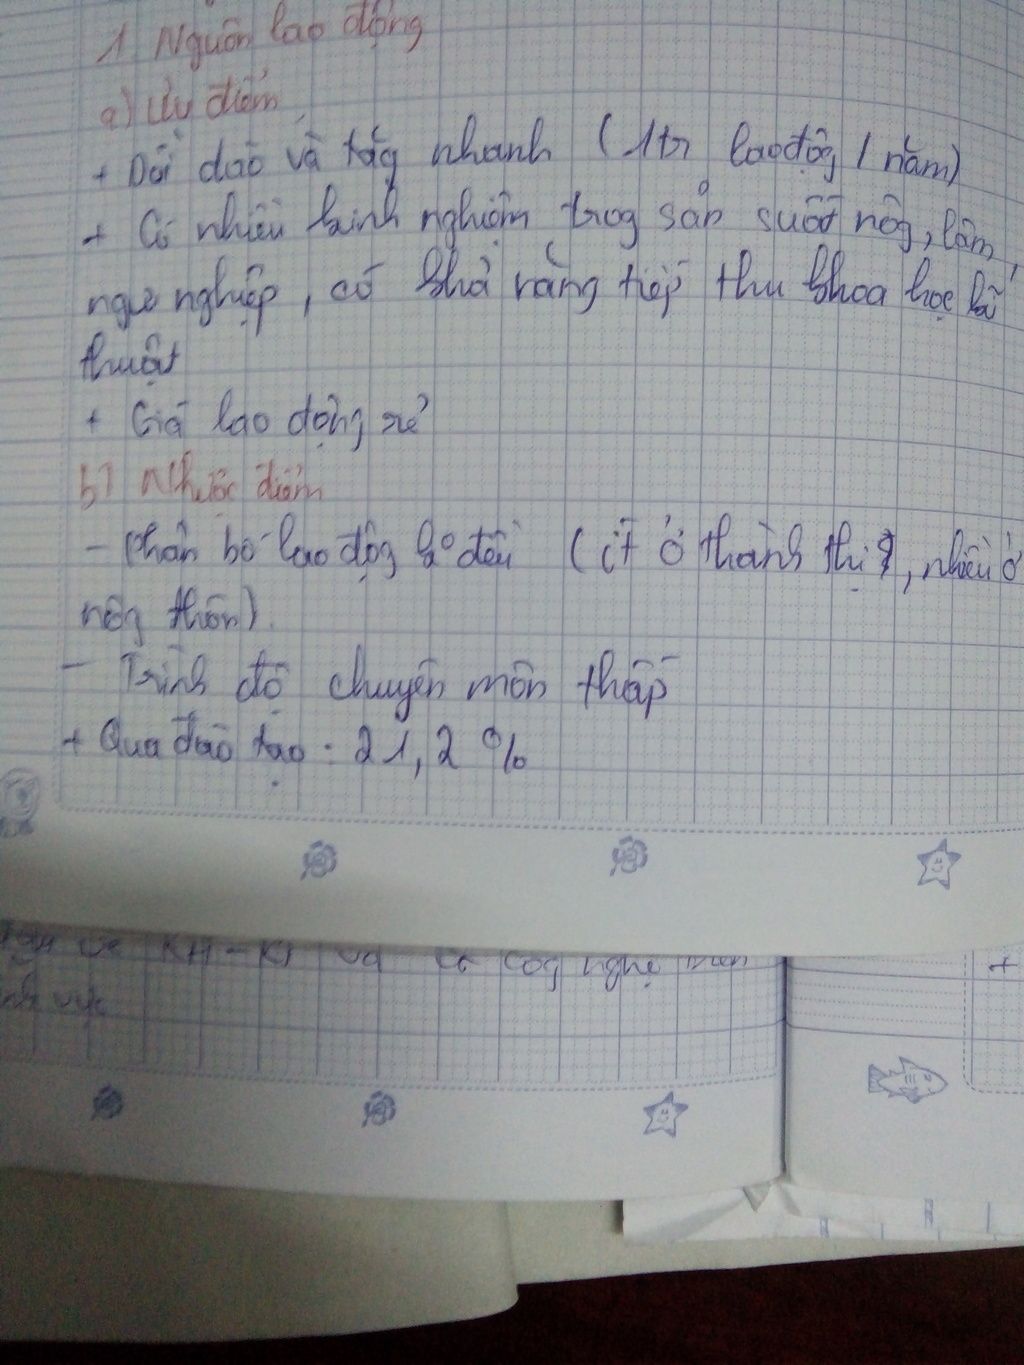 1 Nguồn lao động
a) Ưu điểm
+ Dồi dào và tăg nhanh (1tr lao độg / năm)
+ Có nhiều kinh nghiệm trog sản suất nôg, lâm,
ngư nghiệp, có khả năng tiếp thu khoa học kĩ
thuật
+ Giá lao động rẻ
b) Nhược điểm
- Phân bố lao độg ko đều (ít ở thành thị, nhiều ở
nôg thôn).
- Trình độ chuyên môn thấp
+ Qua đào tạo : 21,2 %
về KH - KT và côg nghệ
vực
+